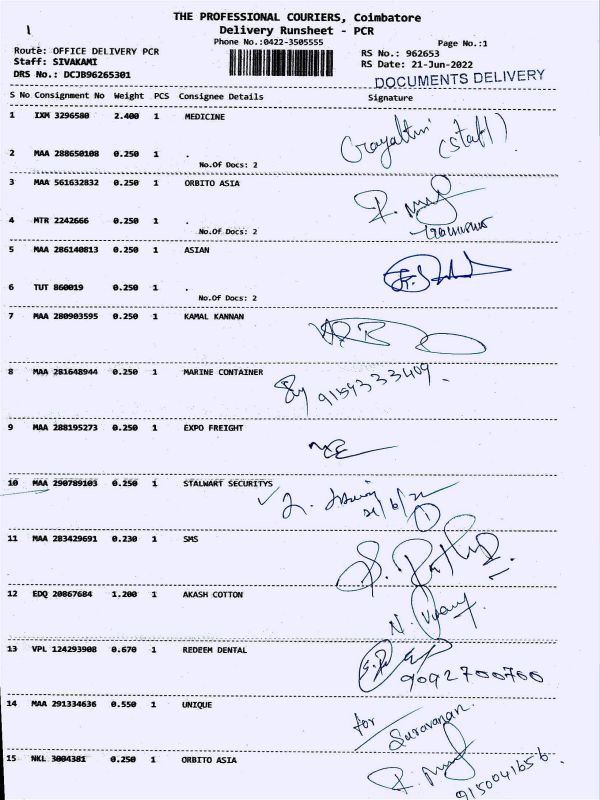 THE PROFESSIONAL COURIERS, Coimbatore
1
Delivery Runsheet - PCR
Phone No.:0422-3505555
Page No.:1
Route: OFFICE DELIVERY PCR
RS No.: 962653
Staff: SIVAKAMI
RS Date: 21-Jun-2022
DRS No.: DCJB96265301
DOCUMENTS DELIVERY
S No Consignment No Weight PCS Consignee Details Signature
1 IXM 3296580 2.400 1 MEDICINE
(staff)
2 MAA 288650108 0.250 1 .
No.Of Docs: 2
3 MAA 561632832 0.250 1 ORBITO ASIA
4 MTR 2242666 0.250 1 .
No.Of Docs: 2
5 MAA 286140813 0.250 1 ASIAN
6 TUT 860019 0.250 1 .
No.Of Docs: 2
7 MAA 280903595 0.250 1 KAMAL KANNAN
8 MAA 281648944 0.250 1 MARINE CONTAINER
9154333409
9 MAA 288195273 0.250 1 EXPO FREIGHT
10 MAA 290789103 0.250 1 STALWART SECURITYS
21/6/22
1
11 MAA 283429691 0.230 1 SMS
12 EDQ 20867684 1.200 1 AKASH COTTON
13 VPL 124293908 0.670 1 REDEEM DENTAL
9092700700
14 MAA 291334636 0.550 1 UNIQUE
for
Saravanan.
15 NKL 3004381 0.250 1 ORBITO ASIA
9150041656.